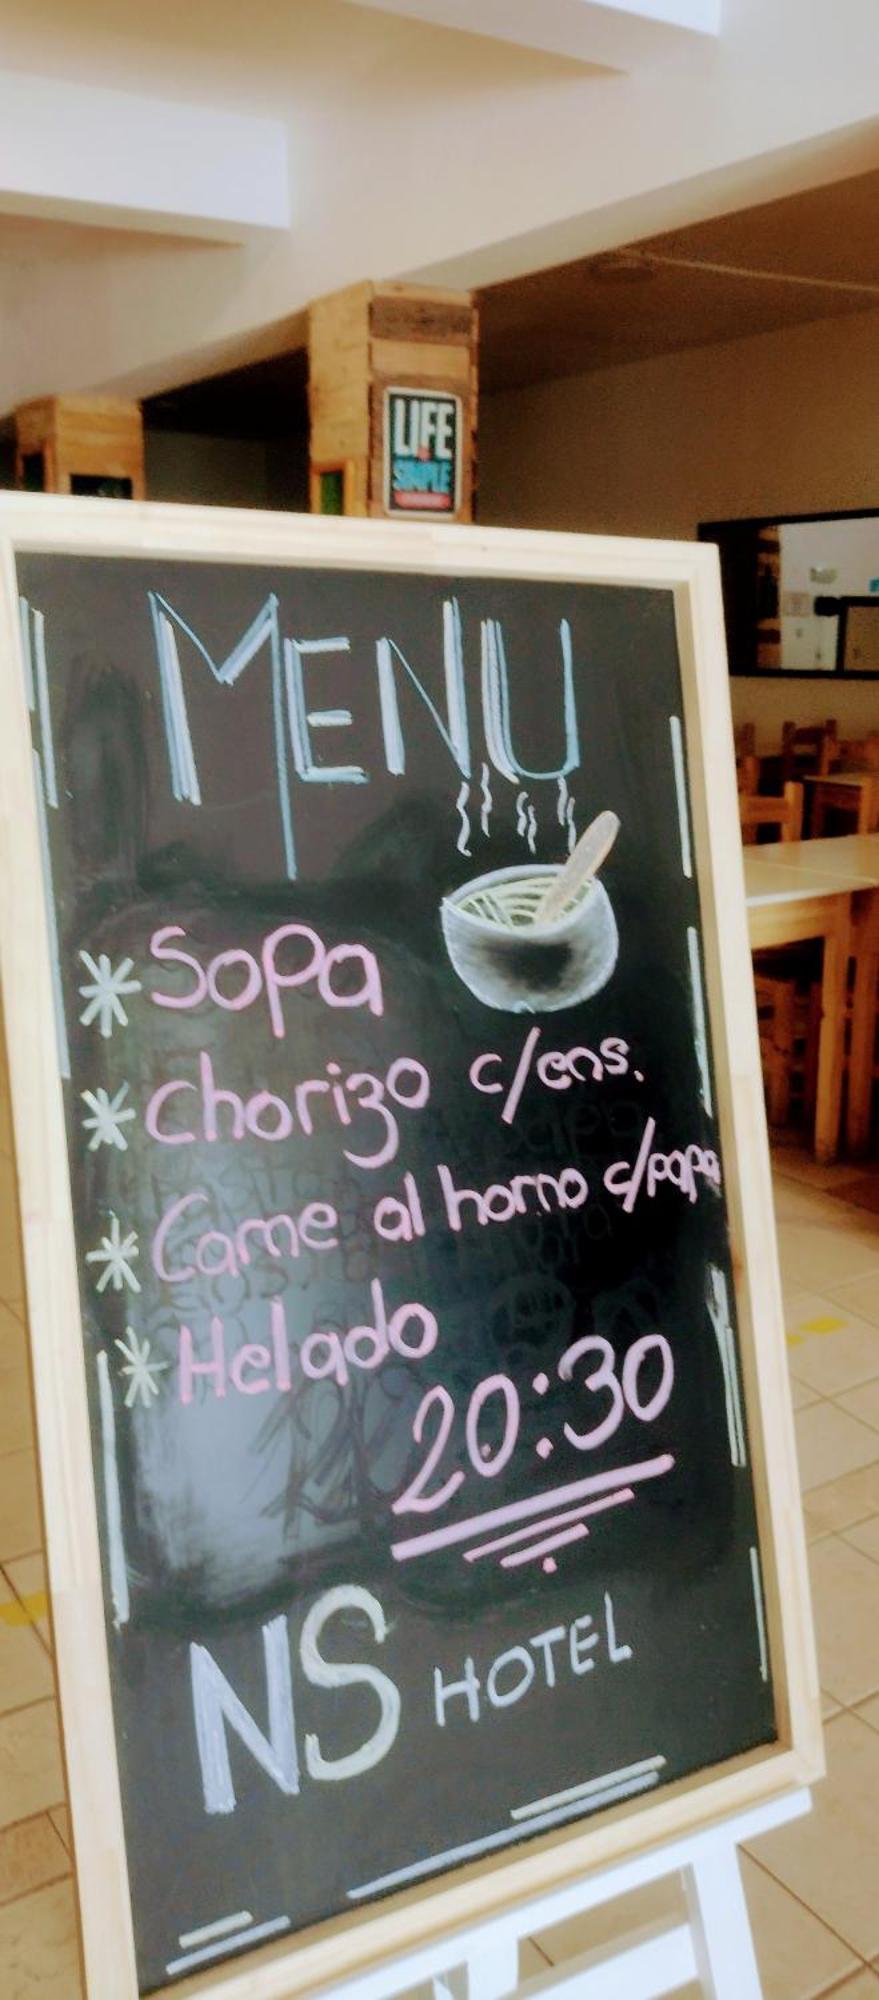 LIFE
SIMPLE
MENU
* Sopa
* Chorizo c/ens.
* Carne al horno c/papa
* Helado
20:30
NS HOTEL